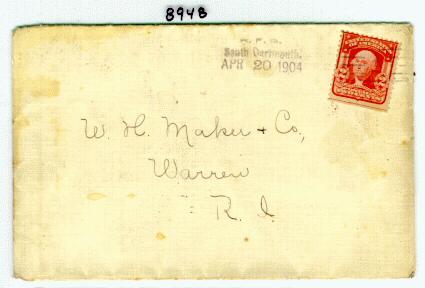 8948
R. F. D.
South Dartmouth.
APR 20 1904
2 2
W. H. Maker & Co,
Warren
R. I.